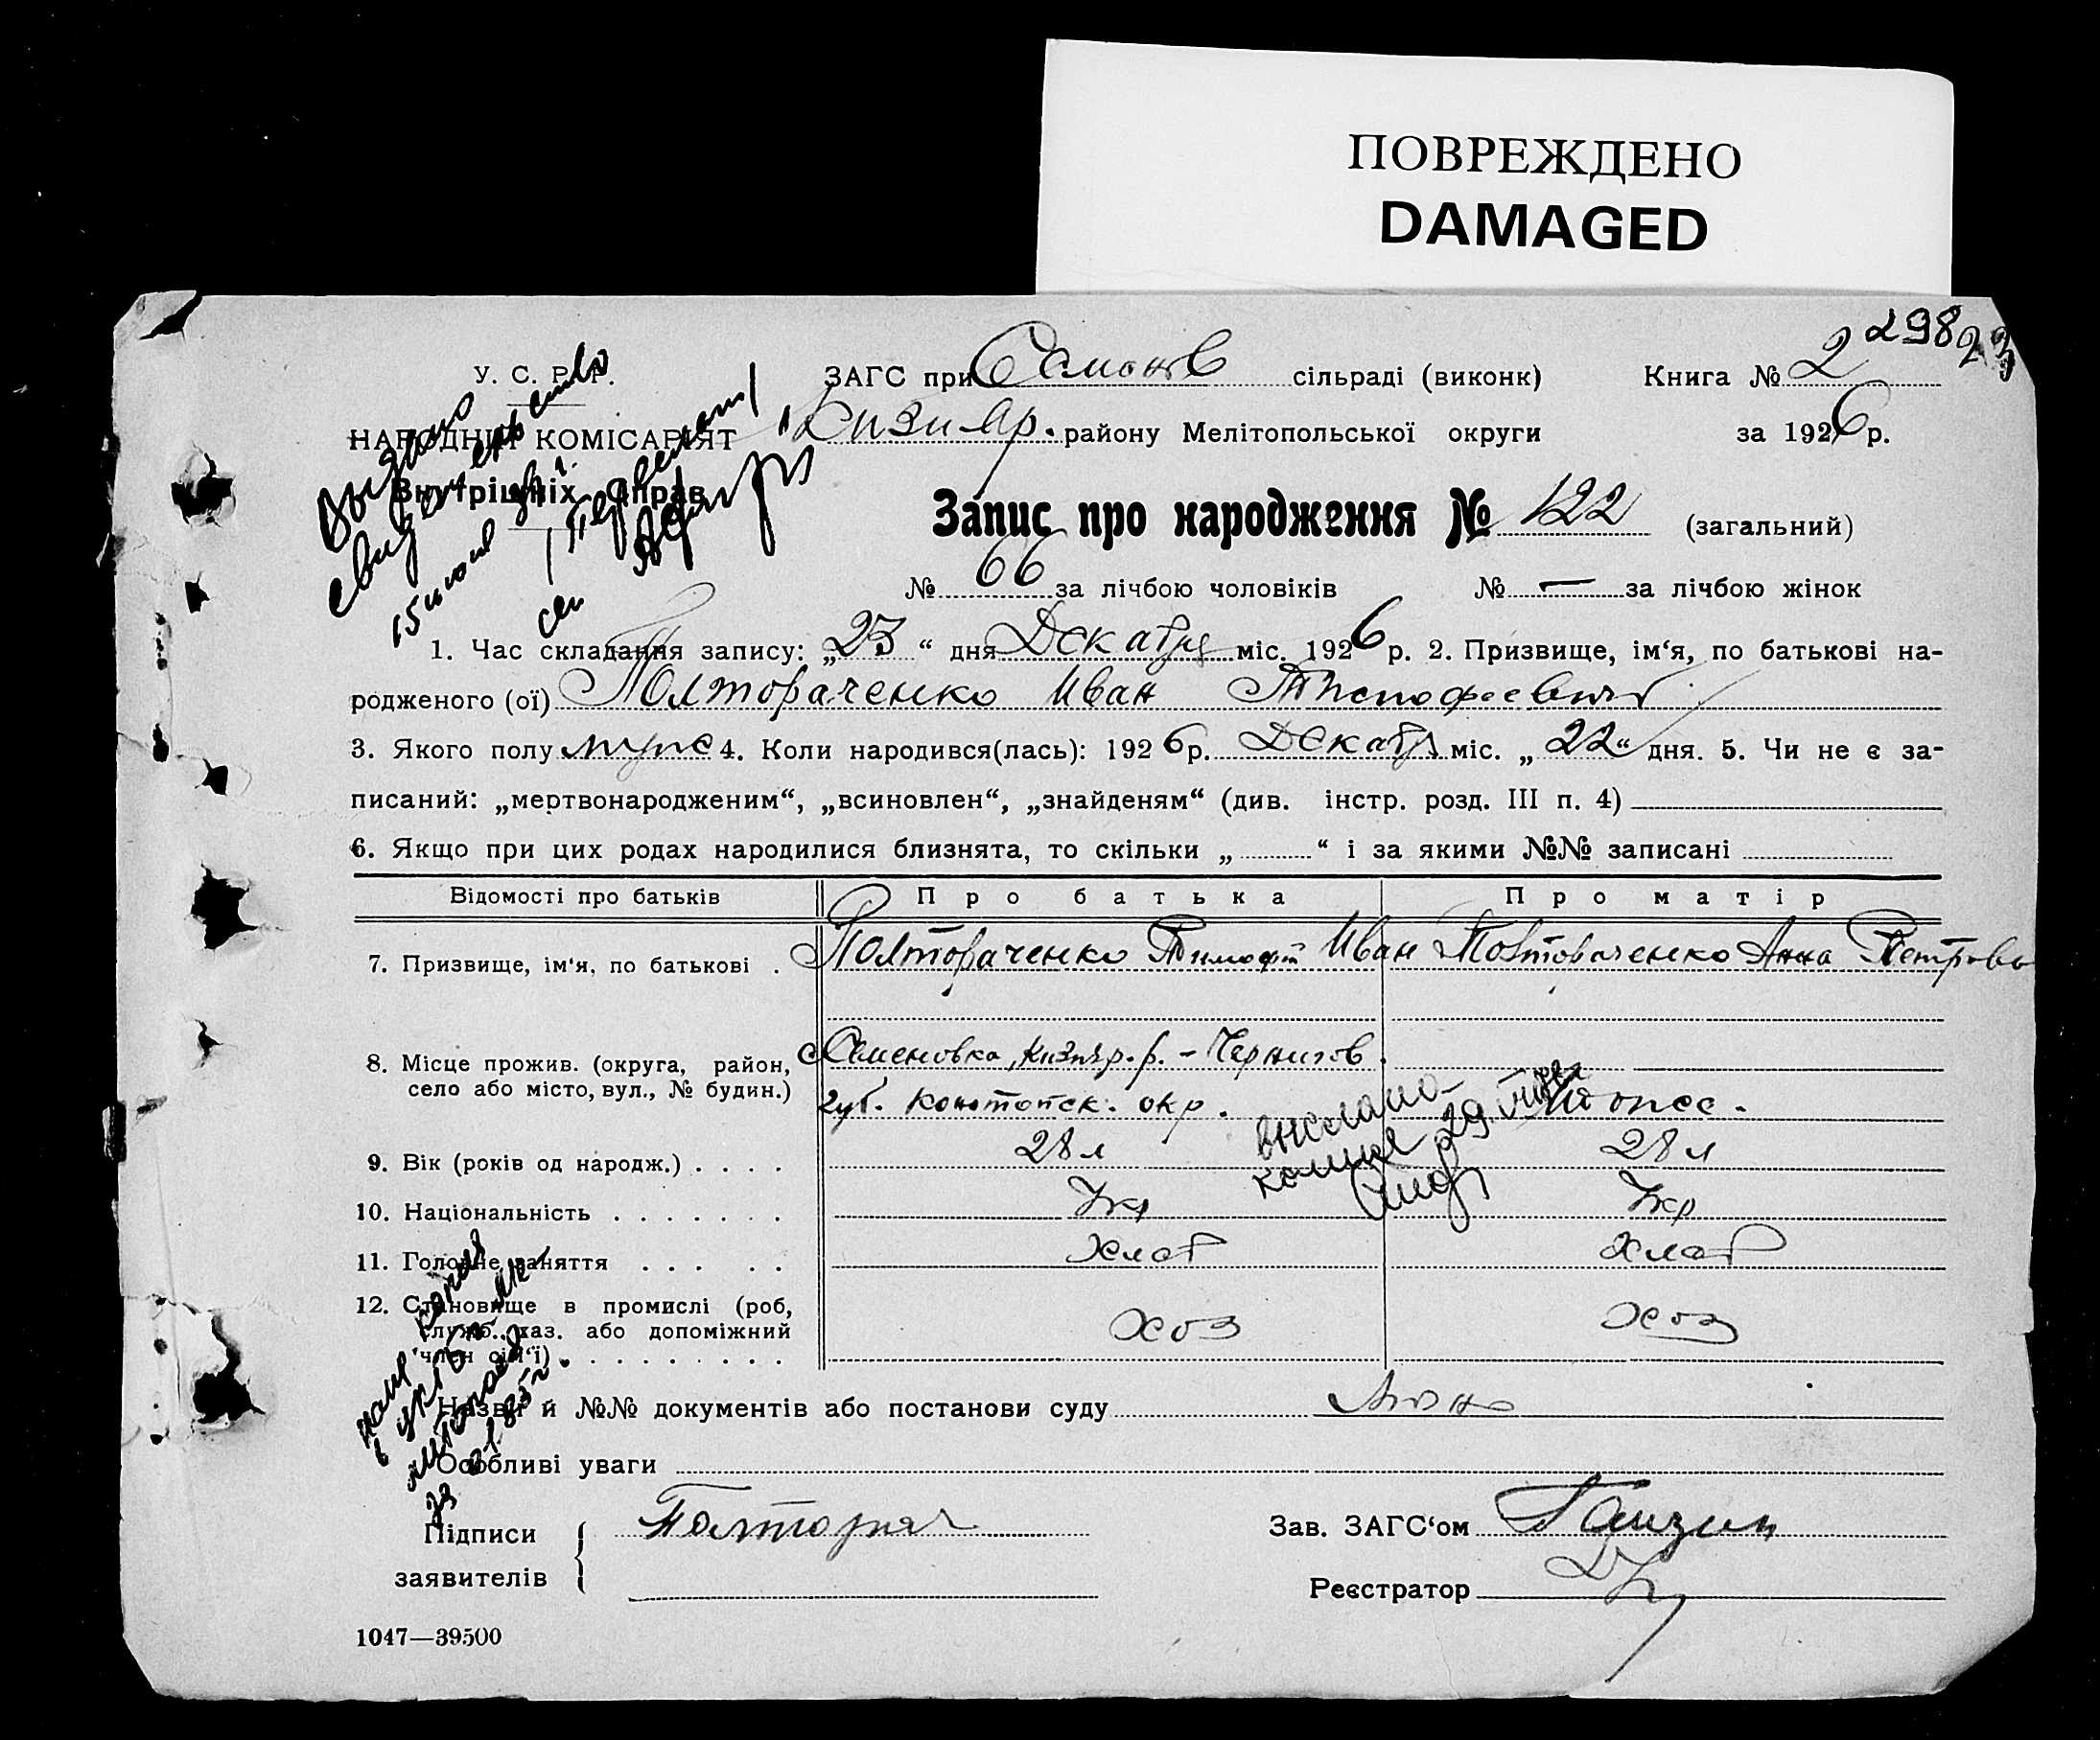 ПОВРЕЖДЕНО
DAMAGED
29823
У. С. Р. Р.
ЗАГС при Семонів сільраді (виконк) Книга № 2
НАРОДНІЙ КОМІСАРІЯТ
Кизияр. району Мелітопольської округи за 1926 р.
Внутрішніх Справ
Выдано
свидетельство
15 июня
Запис про народження № 122 (загальний)
№ 66 за лічбою чоловіків № — за лічбою жінок
1. Час складання запису: „23“ дня Декабря міс. 1926 р. 2. Призвище, ім‘я, по батькові на-
родженого (ої) Полтораченко Иван
3. Якого полу муже 4. Коли народився(лась): 1926 р. Декабр міс. „22“ дня. 5. Чи не є за-
писаний: „мертвонародженим“, „всиновлен“, „знайденям“ (див. інстр. розд. III п. 4)
6. Якщо при цих родах народилися близнята, то скільки „ “ і за якими №№ записані
Відомості про батьків Про батька Про матір
7. Призвище, ім‘я, по батькові . Полтораченко Тимофей Иван Полтораченко Анна Петрова
8. Місце прожив. (округа, район, с Семеновка, Кизияр. р. – Чернигов.
село або місто, вул., № будин.) губ. Конотопск. окр. тоже.
выслано
копия 29
9. Вік (років од народж.) . . . . 28 л 28 л
10. Національність . . . . . . . Укр Укр
11. Головне заняття . . . . . Хлеб Хлеб
12. Становище в промислі (роб, Хоз Хоз
служб., хаз. або допоміжний
член сім‘ї) . . . . . . . . .
копия
Назви й №№ документів або постанови суду
Особливі уваги
Підписи
заявителів
Полторач
Зав. ЗАГС‘ом
Реєстратор
1047—39500